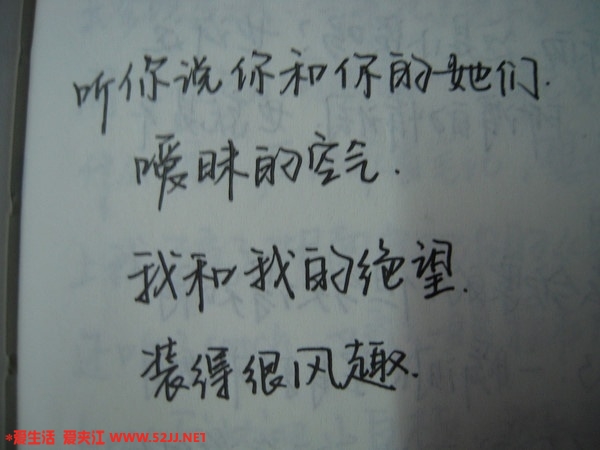 听你说你和你的她们.
嗳昧的空气.
我和我的绝望.
装得很风趣.
*爱生活 爱夹江 WWW.52JJ.NET